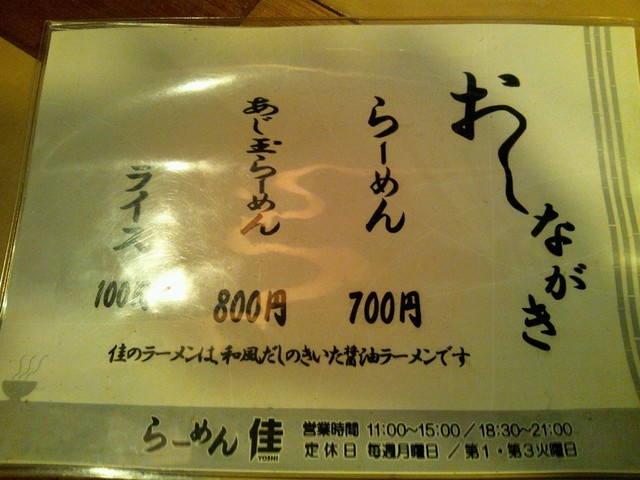 おしながき
らーめん
700円
あじ玉らーめん
800円
ライス
100円
佳のラーメンは、和風だしのきいた醤油ラーメンです
らーめん 佳
YOSHI
営業時間 11:00～15:00／18:30～21:00
定休日 毎週月曜日／第1・第3火曜日